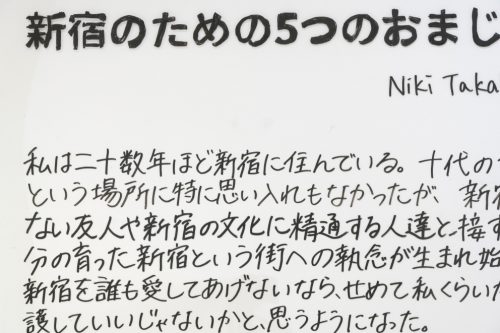 新宿のための5つのおまじ
Niki Taka
私は二十数年ほど新宿に住んでいる。十代の
という場所に特に思い入れもなかったが、新宿
ない友人や新宿の文化に精通する人達と接す
分の育った新宿という街への執念が生まれ始
新宿を誰も愛してあげないなら、せめて私くらいが
護していいじゃないかと、思うようになった。